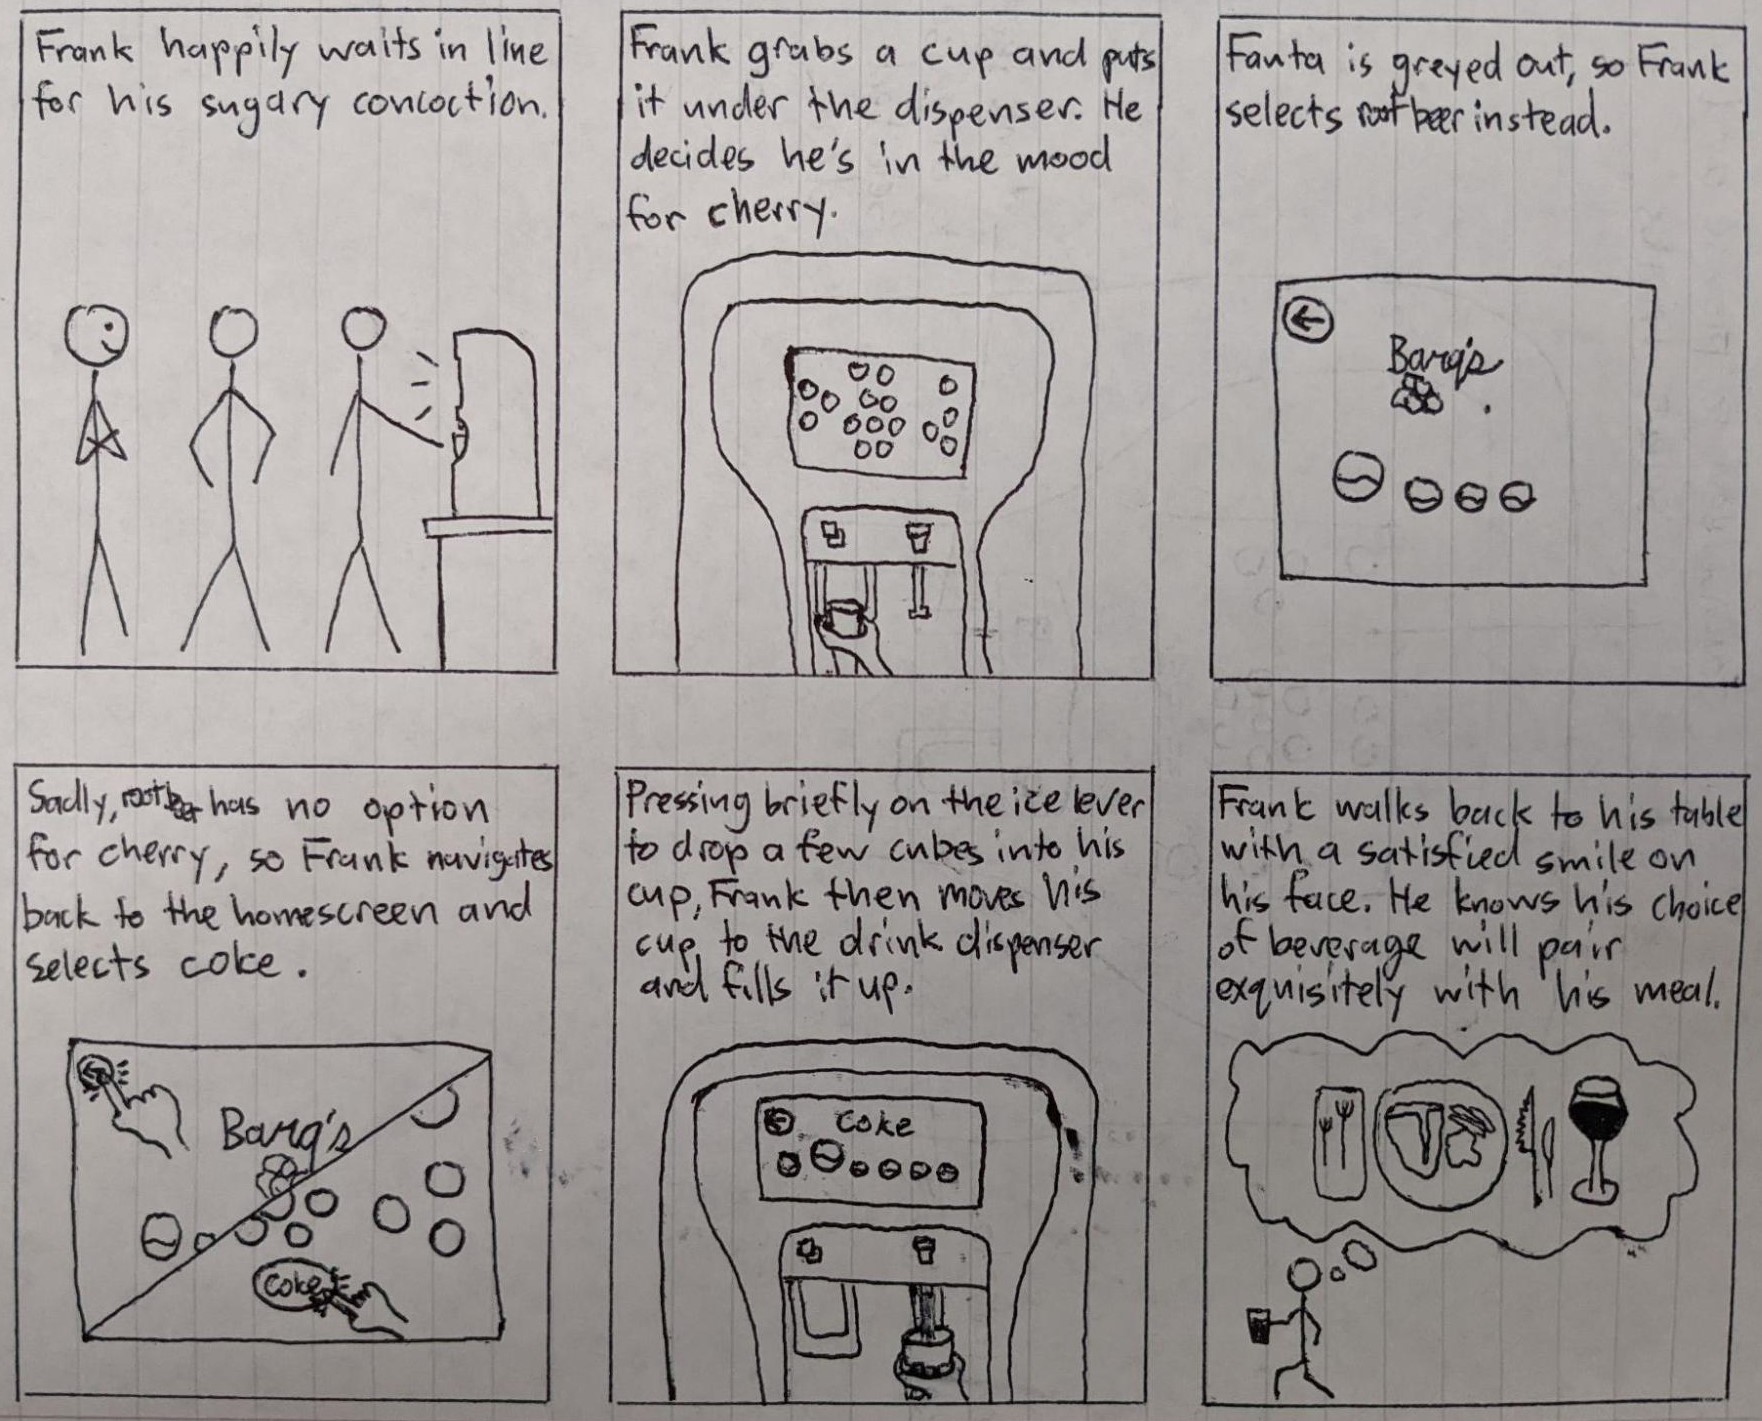 Frank happily waits in line
for his sugary concoction.
Frank grabs a cup and puts
it under the dispenser. He
decides he's in the mood
for cherry.
Fanta is greyed out, so Frank
selects root beer instead.
Barq's
Sadly, root beer has no option
for cherry, so Frank navigates
back to the homescreen and
selects coke.
Barq's
Coke
Pressing briefly on the ice lever
to drop a few cubes into his
cup, Frank then moves his
cup to the drink dispenser
and fills it up.
Coke
Frank walks back to his table
with a satisfied smile on
his face. He knows his choice
of beverage will pair
exquisitely with his meal.